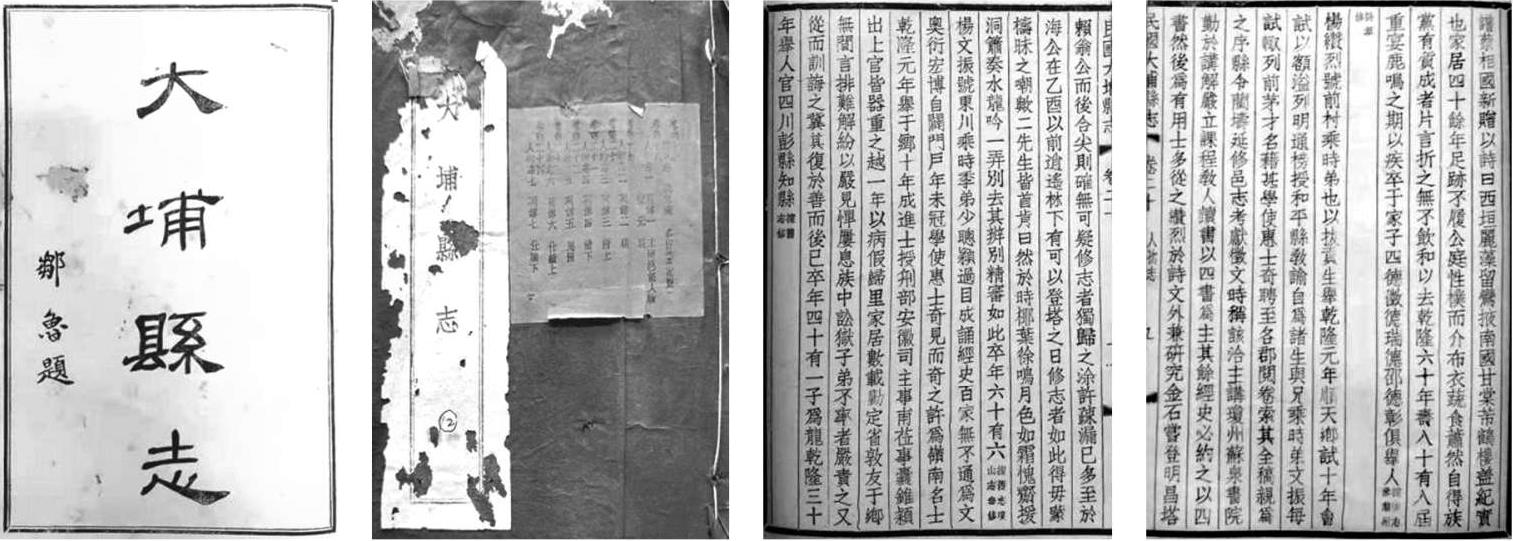 大埔縣志
鄒魯題
大埔縣志
②
譜蔡相國新贈以詩曰西垣麗藻留鸞掖南國甘棠芾鶴樓蓋紀實
也家居四十餘年足跡不履公庭性樸而介布衣蔬食蕭然自得族
黨有質成者片言折之無不飲和以去乾隆六十年壽八十有八屆
重宴鹿鳴之期以疾卒于家子四德徽德瑞德邵德彰俱舉人
楊纘烈號前村乘時弟也以拔貢生舉乾隆元年順天鄉試十年會
試以額溢列明通榜授和平縣敎諭自爲諸生與兄乘時弟文振每
試輙列前茅才名藉甚學使惠士奇聘至各郡閱卷索其全稿親爲
之序縣令藺壔延修邑志考獻徵文時稱該洽主講瓊州蘇泉書院
勤於講解嚴立課程敎人讀書以四書爲主其餘經史必約之以四
書然後爲有用士多從之纘烈於詩文外兼硏究金石嘗登明昌塔
民國大埔縣志 卷二十 人物志 九
民國大埔縣志 卷二十
賴翁公而後合尖則確無可疑修志者獨歸之涂許疎漏已多至於
海公在乙酉以前逍遙林下有可以登塔之日修志者如此得毋蒙
檮昧之嘲歟二先生皆首肯曰然於時椰葉徐鳴月色如霜愧齋援
洞簫奏水龍吟一弄別去其辨別精審如此卒年六十有六
楊文振號東川乘時季弟少聰穎過目成誦經史百家無不通爲文
奧衍宏博自闢門戶年未冠學使惠士奇見而奇之許爲嶺南名士
乾隆元年舉于鄉十年成進士授刑部安徽司主事甫莅事囊錐穎
出上官皆器重之越一年以病假歸里家居數載勤定省敦友于鄉
無閒言排難解紛以嚴見憚屢息族中訟獄子弟不率者嚴責之又
從而訓誨之冀其復於善而後已卒年四十有一子爲龍乾隆三十
年舉人官四川彭縣知縣